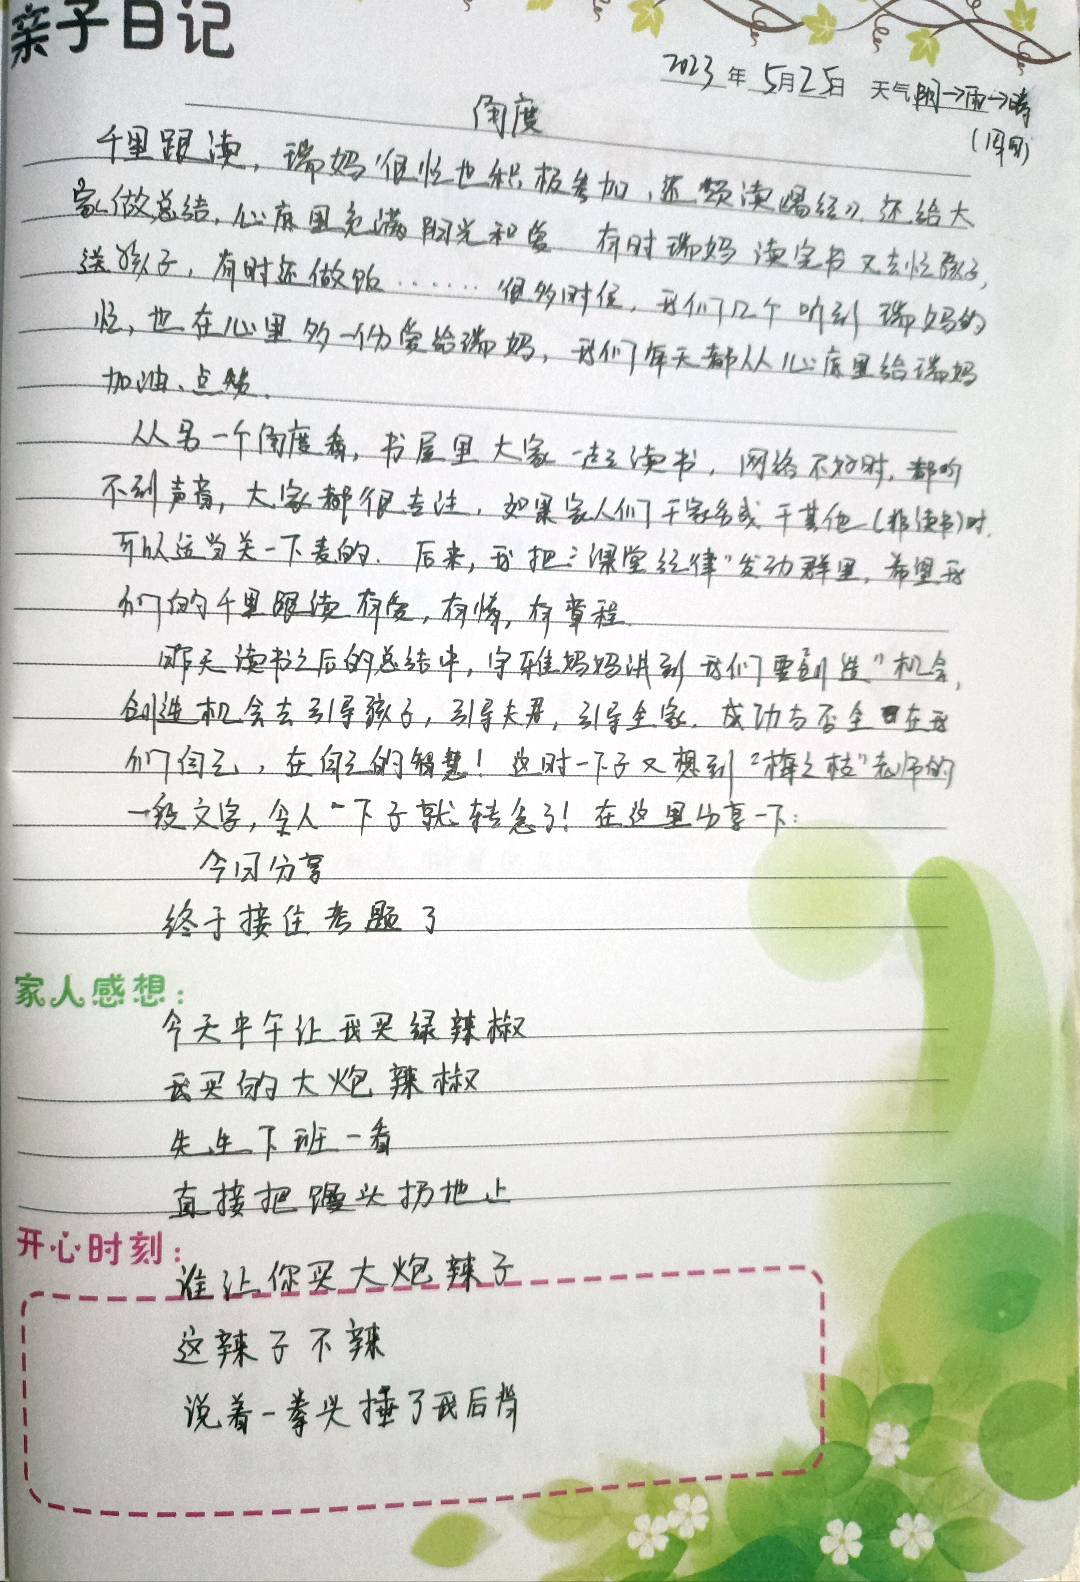 亲子日记
2023年5月25日 天气 阴→雨→晴
(周四)
角度
千里跟读，瑞妈很忙也积极参加，还领读《易经》，还给大
家做总结，心底里充满阳光和爱 有时瑞妈读完书又去忙孩子，
送孩子，有时还做饭……很多时候，我们几个听到瑞妈的
忙，也在心里多一份爱给瑞妈，我们每天都从心底里给瑞妈
加油、点赞。
从另一个角度看，书屋里大家一起读书，网络不好时，都听
不到声音，大家都很专注，如果家人们干家务或干其他(非读书)时，
可以适当关一下麦的. 后来，我把"课堂纪律"发动群里，希望我
们的千里跟读有爱，有情，有章程.
昨天读书之后的总结中，守雅妈妈讲到我们要创造"机会，
创造机会去引导孩子，引导夫君，引导全家. 成功与否全在我
们自己，在自己的智慧！这时一下子又想到"梅之枝"老师的
一段文字，令人一下子就转念了！在这里分享一下：
今日分享
终于接住考题了
家人感想：
今天中午让我买绿辣椒
我买的大炮辣椒
先生下班一看
直接把馒头扔地上
开心时刻：
谁让你买大炮辣子
这辣子不辣
说着一拳头捶了我后背